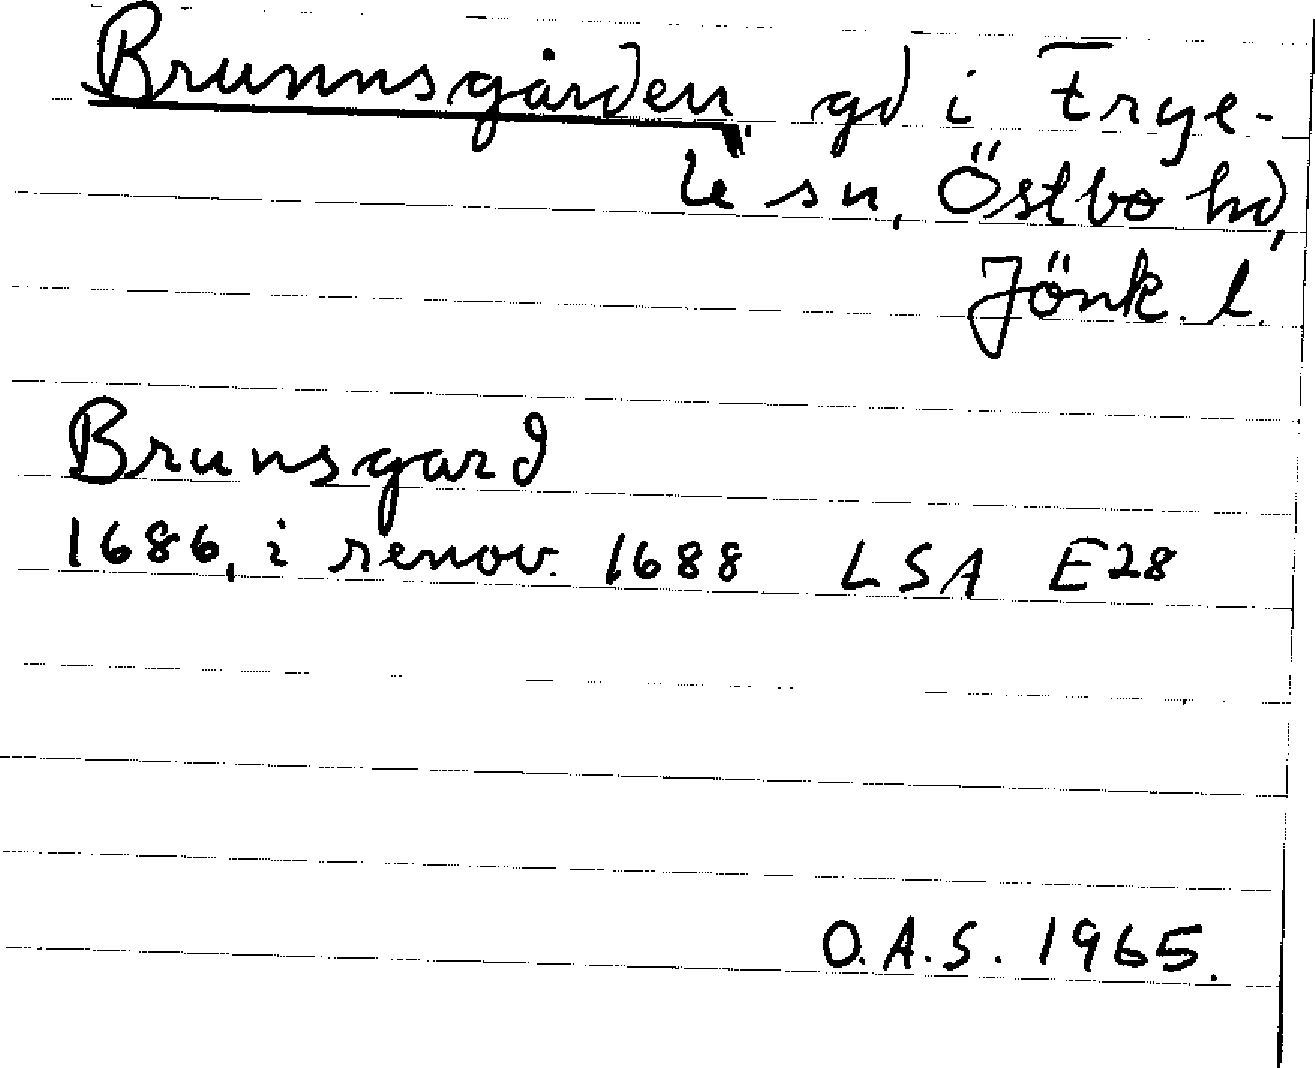 Brunnsgården, gd i Frye-
le sn, Östbo hd,
Jönk. l.
Brunsgard
1686, i renov. 1688 LSA E28
O.A.S. 1965.